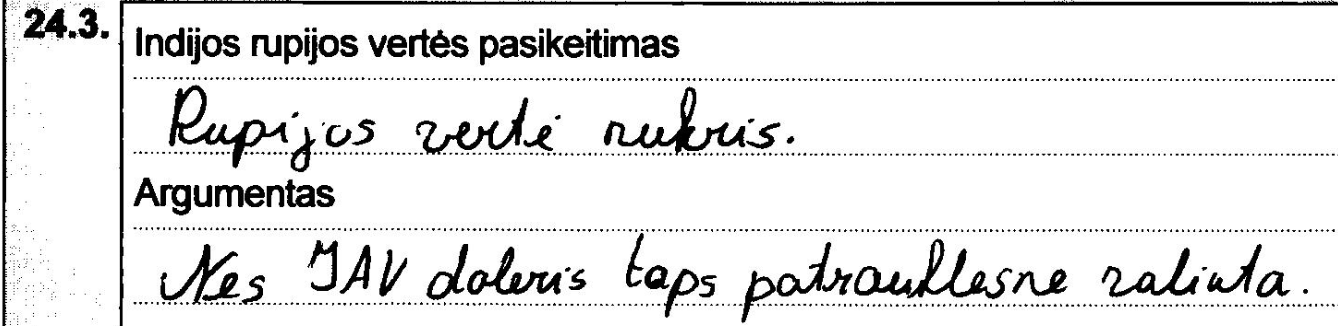 24.3. Indijos rupijos vertės pasikeitimas
Rupijos vertė nukris.
Argumentas
Nes JAV doleris taps patrauklesne valiuta.